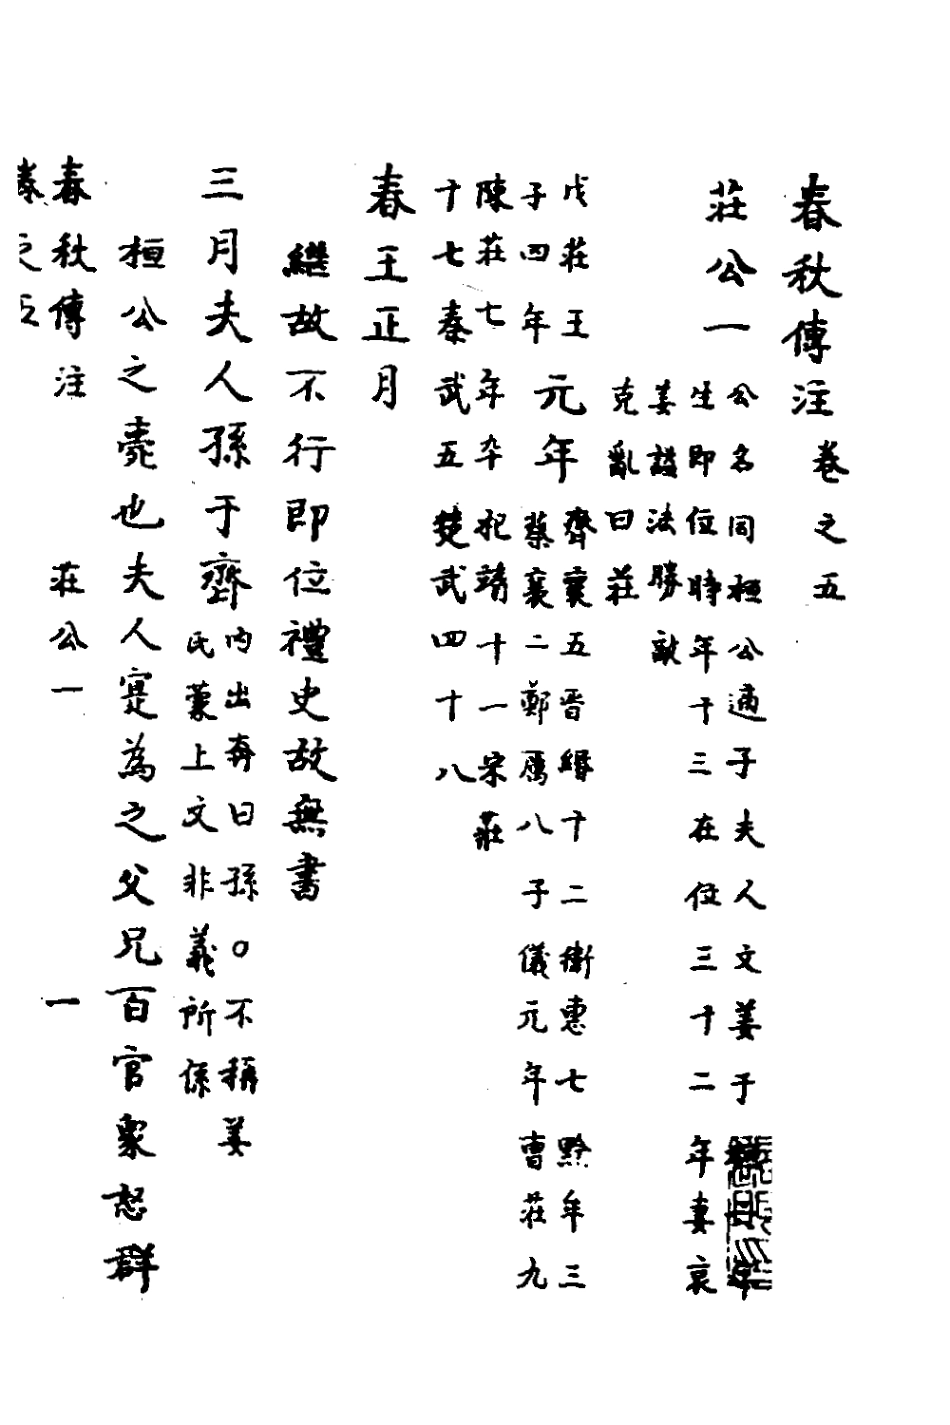 春秋傳注卷之五
莊公一
公名同桓公適子夫人文姜于
生即位時年十三在位三十二年妻哀
姜諡法勝敵
克亂曰莊
戊莊王
子四年
元年
齊襄五晉緡十二衛惠七黔年三
蔡襄二鄭厲八子儀元年曹莊九
陳莊七年卒杞靖十一宋莊
十七秦武五楚武四十八
春王正月
繼故不行即位禮史故無書
三月夫人孫于齊
內出奔曰孫○不稱姜
氏蒙上文非義所係
桓公之薨也夫人寔為之父兄百官衆怒群
春秋傳注 莊公一 一